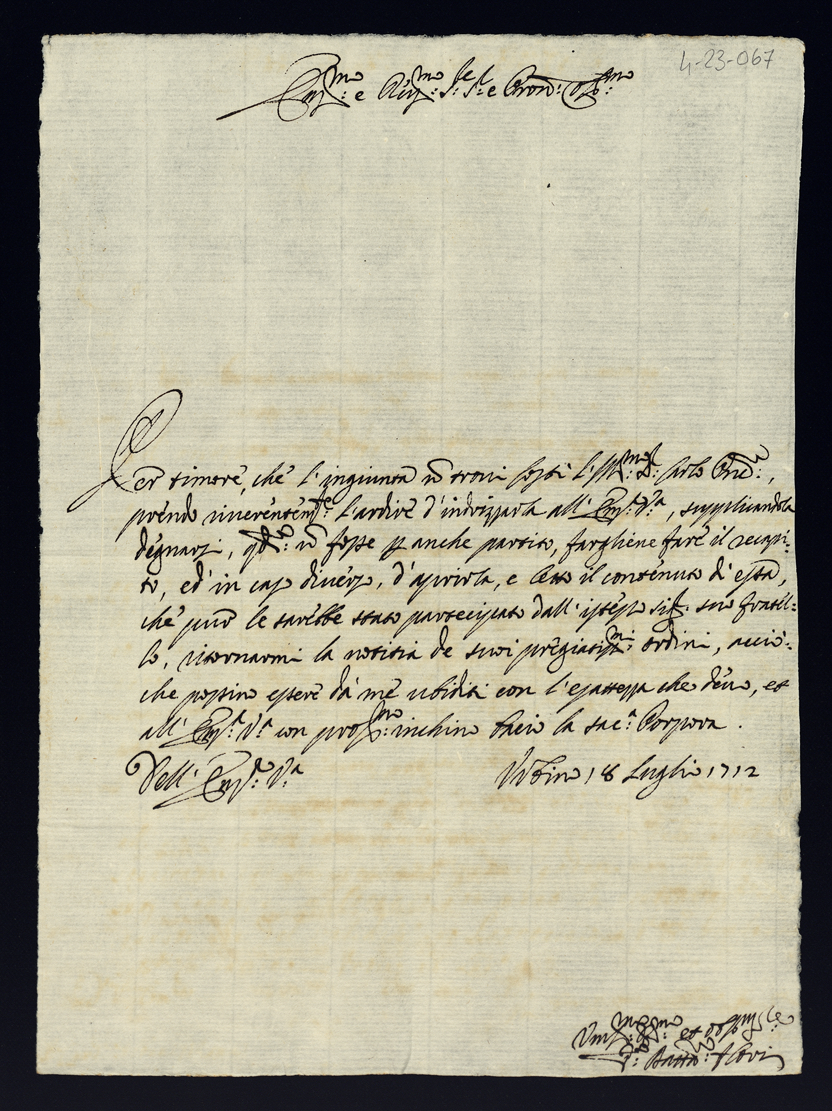 4-23-067
Em:mo e Rev:mo Sig:re Sig:re e Pron: Col:mo
Per timore, che l'ingiunta nõ trovi costì l'Ill:mo Sig: Carlo
prendo riverentem:te l'ardire d'indrizzarla all' Em:a V:a, supplicandola
degnarsi, q:do nõ fosse p anche partito, fargliene fare il recapi-
to, ed' in caso diverso, d'aprirla, e letto il contenuto di essa,
che pure le sarebbe stato partecipato dall' istesso Sig: suo fratel-
lo, ritornarmi la notitia de suoi pregiatiss:mi ordini, acciò-
che possino essere da me ubiditi con l'esattezza che devo, et
all' Em:a V:a con prof:mo inchino bacio la sac:a Porpora.
Dell' Em:a V:a
Urbino 18 Luglio 1712
Um:mo et oblig:mo